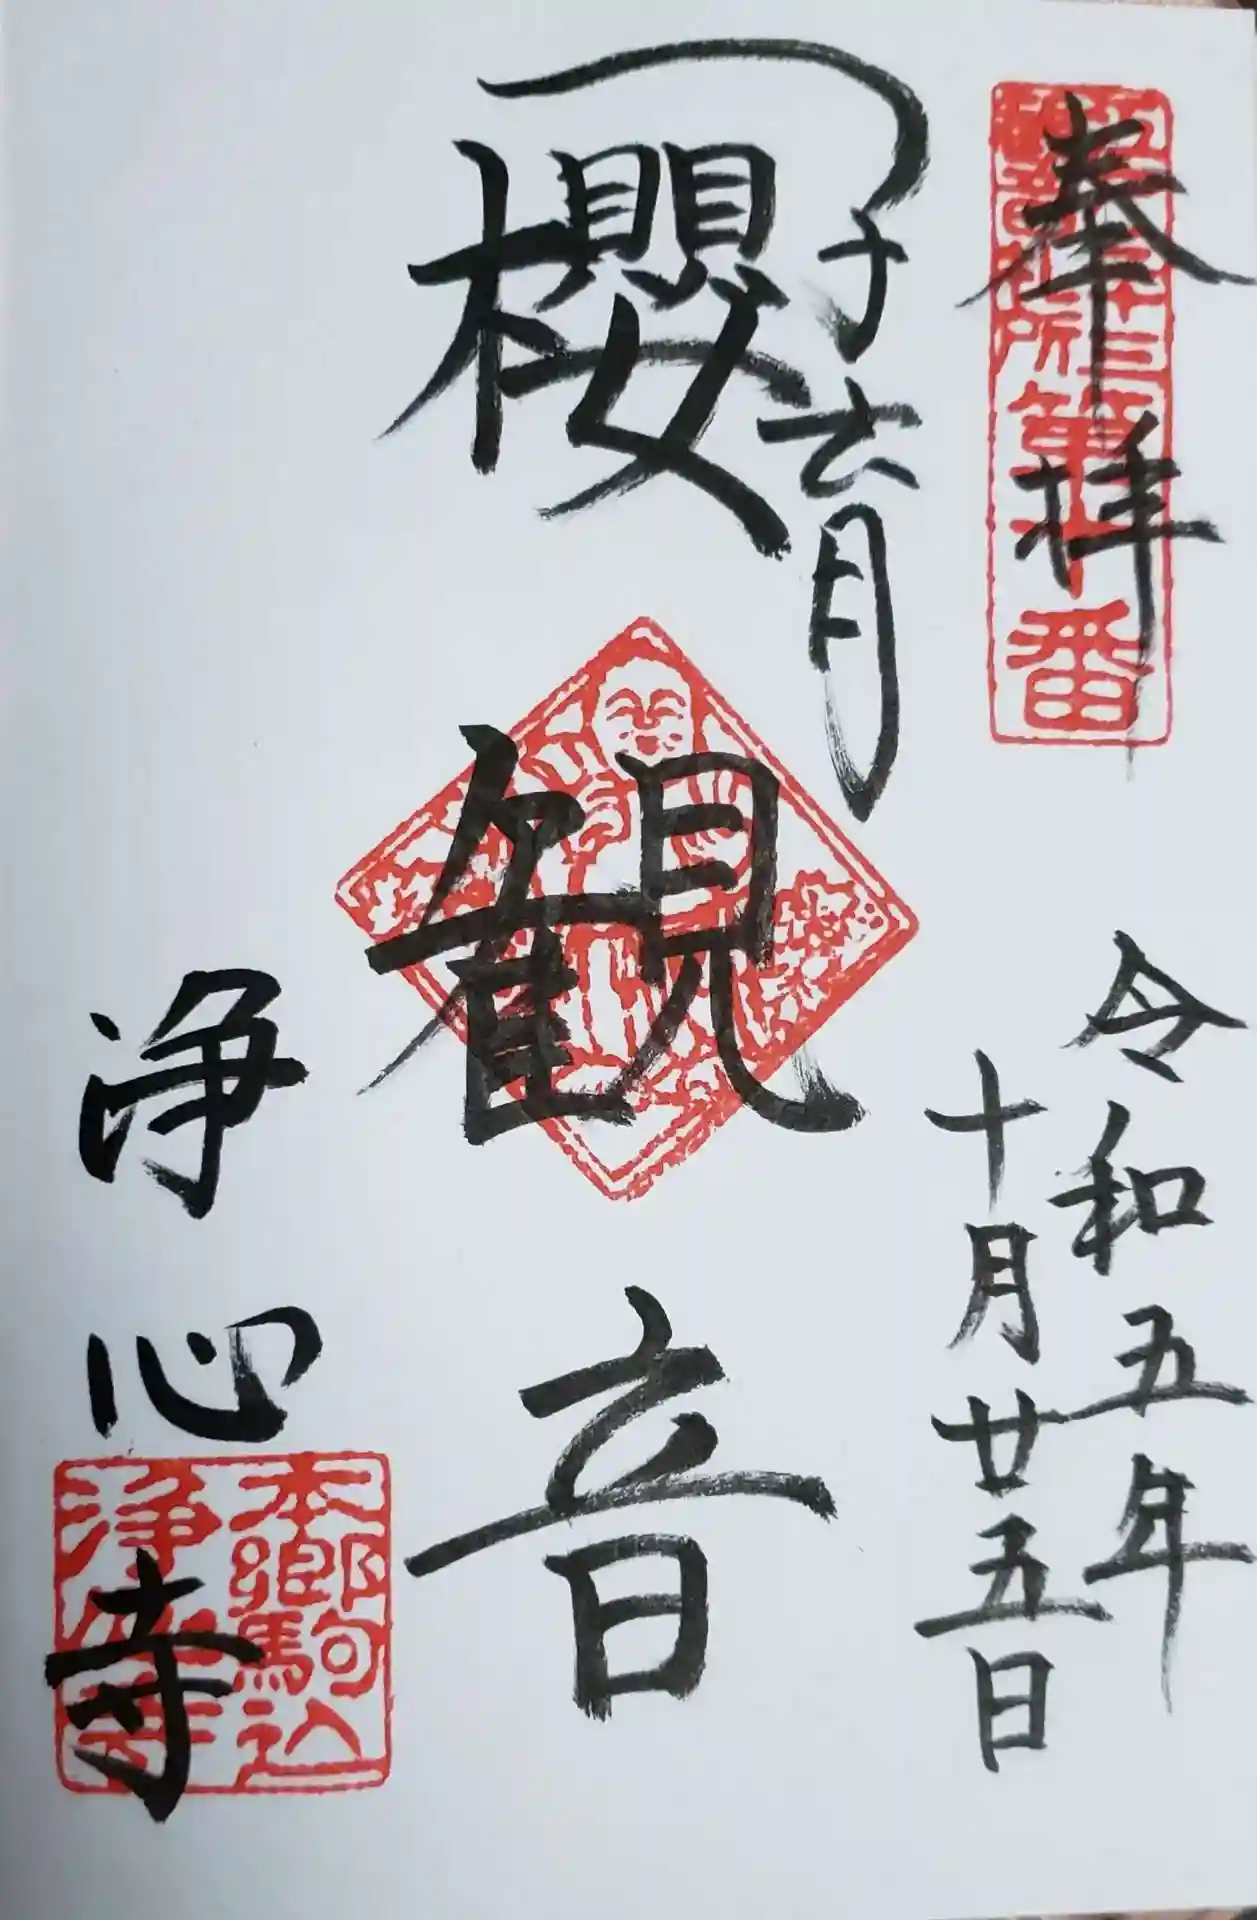 奉拝
令和五年
十月廿五日
子育
櫻観音
浄心寺
第十番
本郷駒込
浄心寺